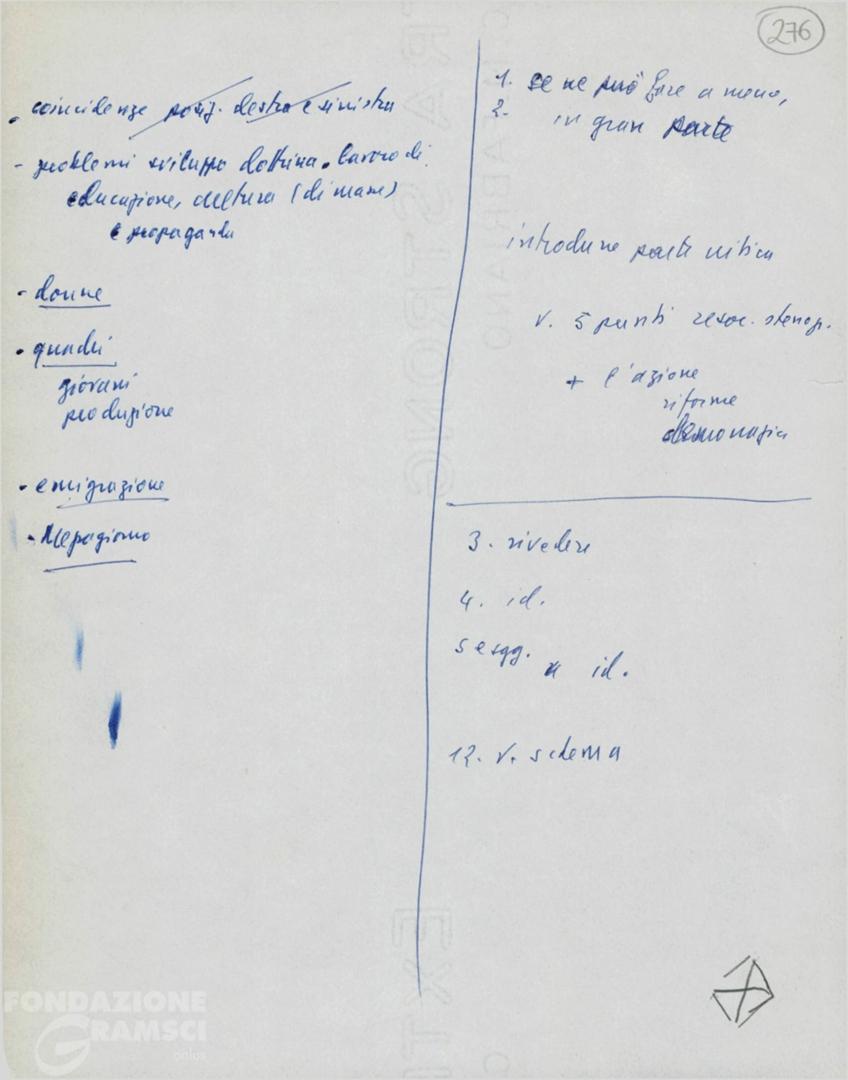 276
. coincidenze posiz. destra e sinistra
- problemi sviluppo dottrina. lavoro di
educazione, cultura (di massa)
e propaganda
- donne
. quadri
giovani
produzione
. emigrazione
. Mezzogiorno
1. se ne può fare a meno,
2. in gran parte
introdurre parte critica
v. 5 punti resoc. stenogr.
+ l'azione
riforme
democrazia
3. rivedere
4. id.
5 e sgg. id.
12. v. schema
FONDAZIONE
GRAMSCI
onlus